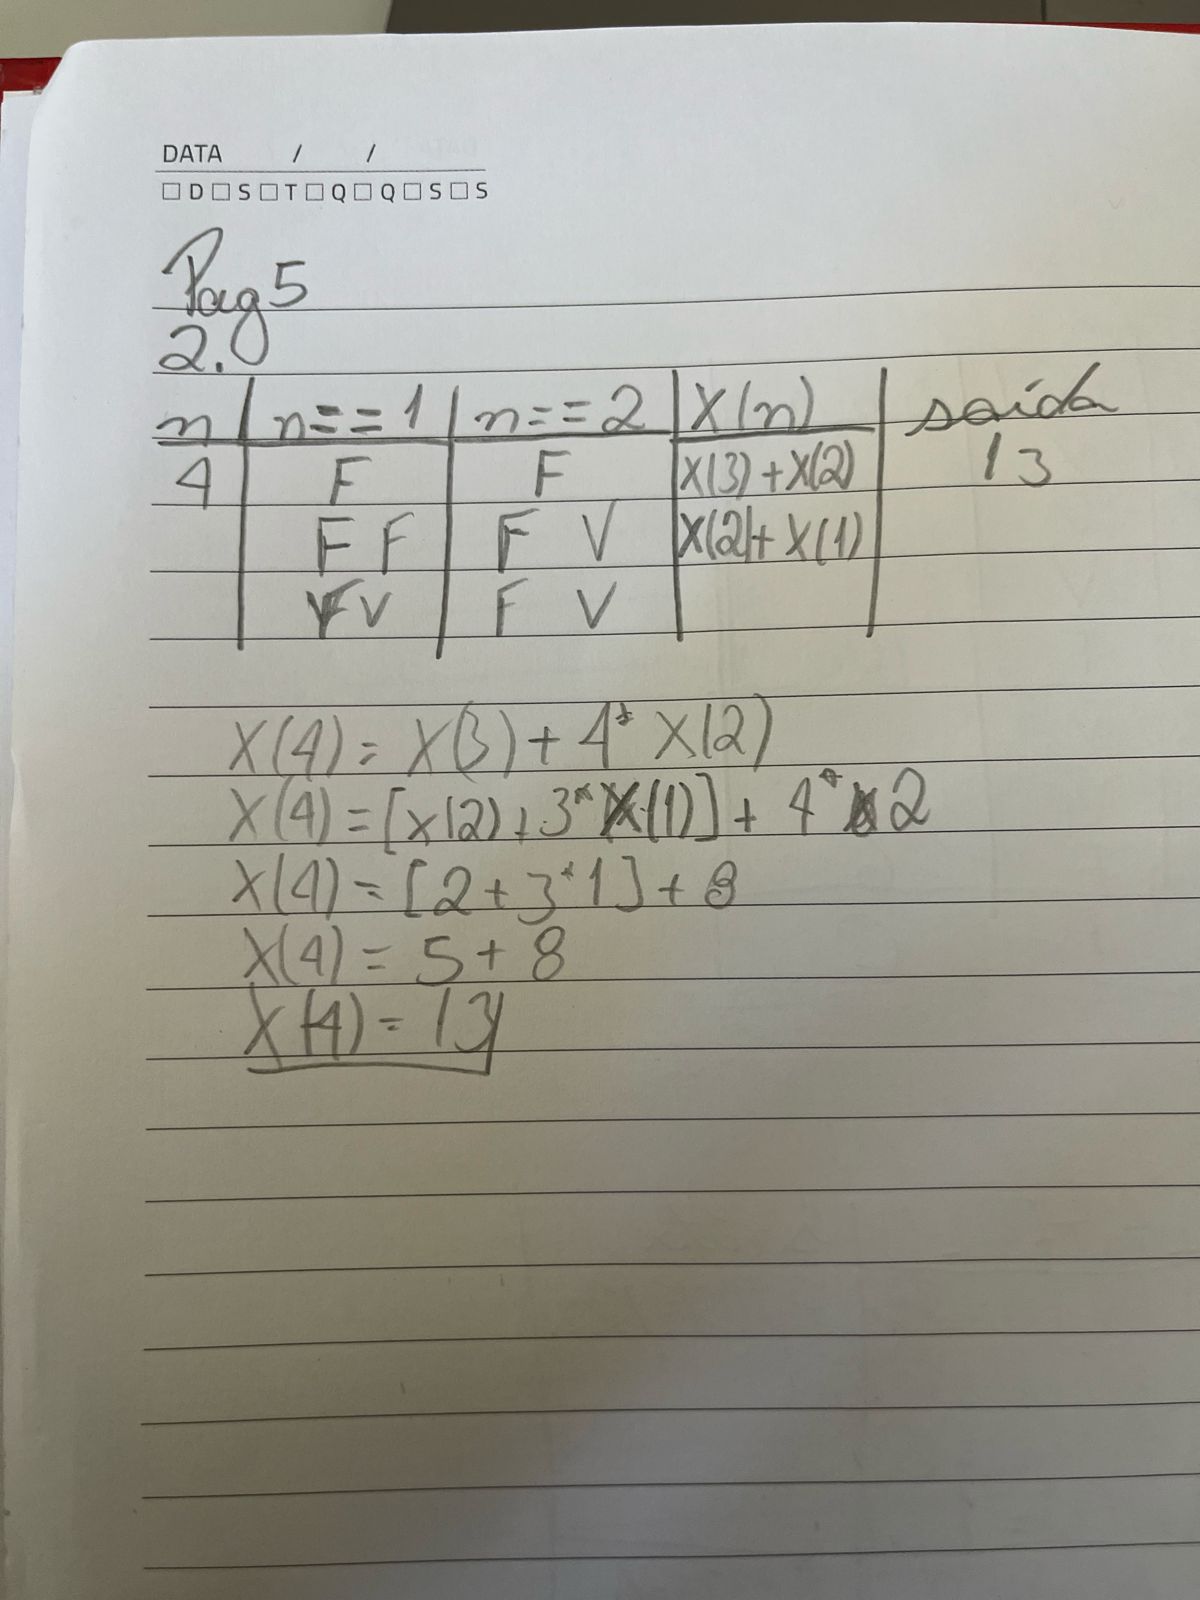 DATA / /
D S T Q Q S S
Pag 5
2.
n | n==1 | n==2 | X(n) | saída
4 F F X(3)+X(2) 13
F F F V X(2)+X(1)
V F V
X(4) = X(3) + 4* X(2)
X(4) = [x(2) + 3* X(1)] + 4* 2
X(4) = [2 + 3*1] + 8
X(4) = 5 + 8
X(4) = 13